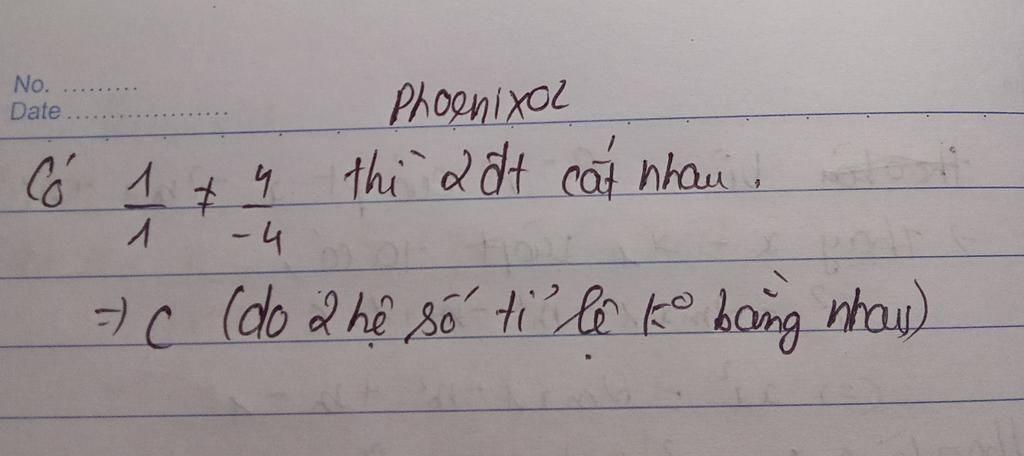 No. .........
Date ...................
Phoenix02
Có 1/1 ≠ 4/-4 thì 2 đt cắt nhau.
=> C (do 2 hệ số tỉ lệ k° bằng nhau)